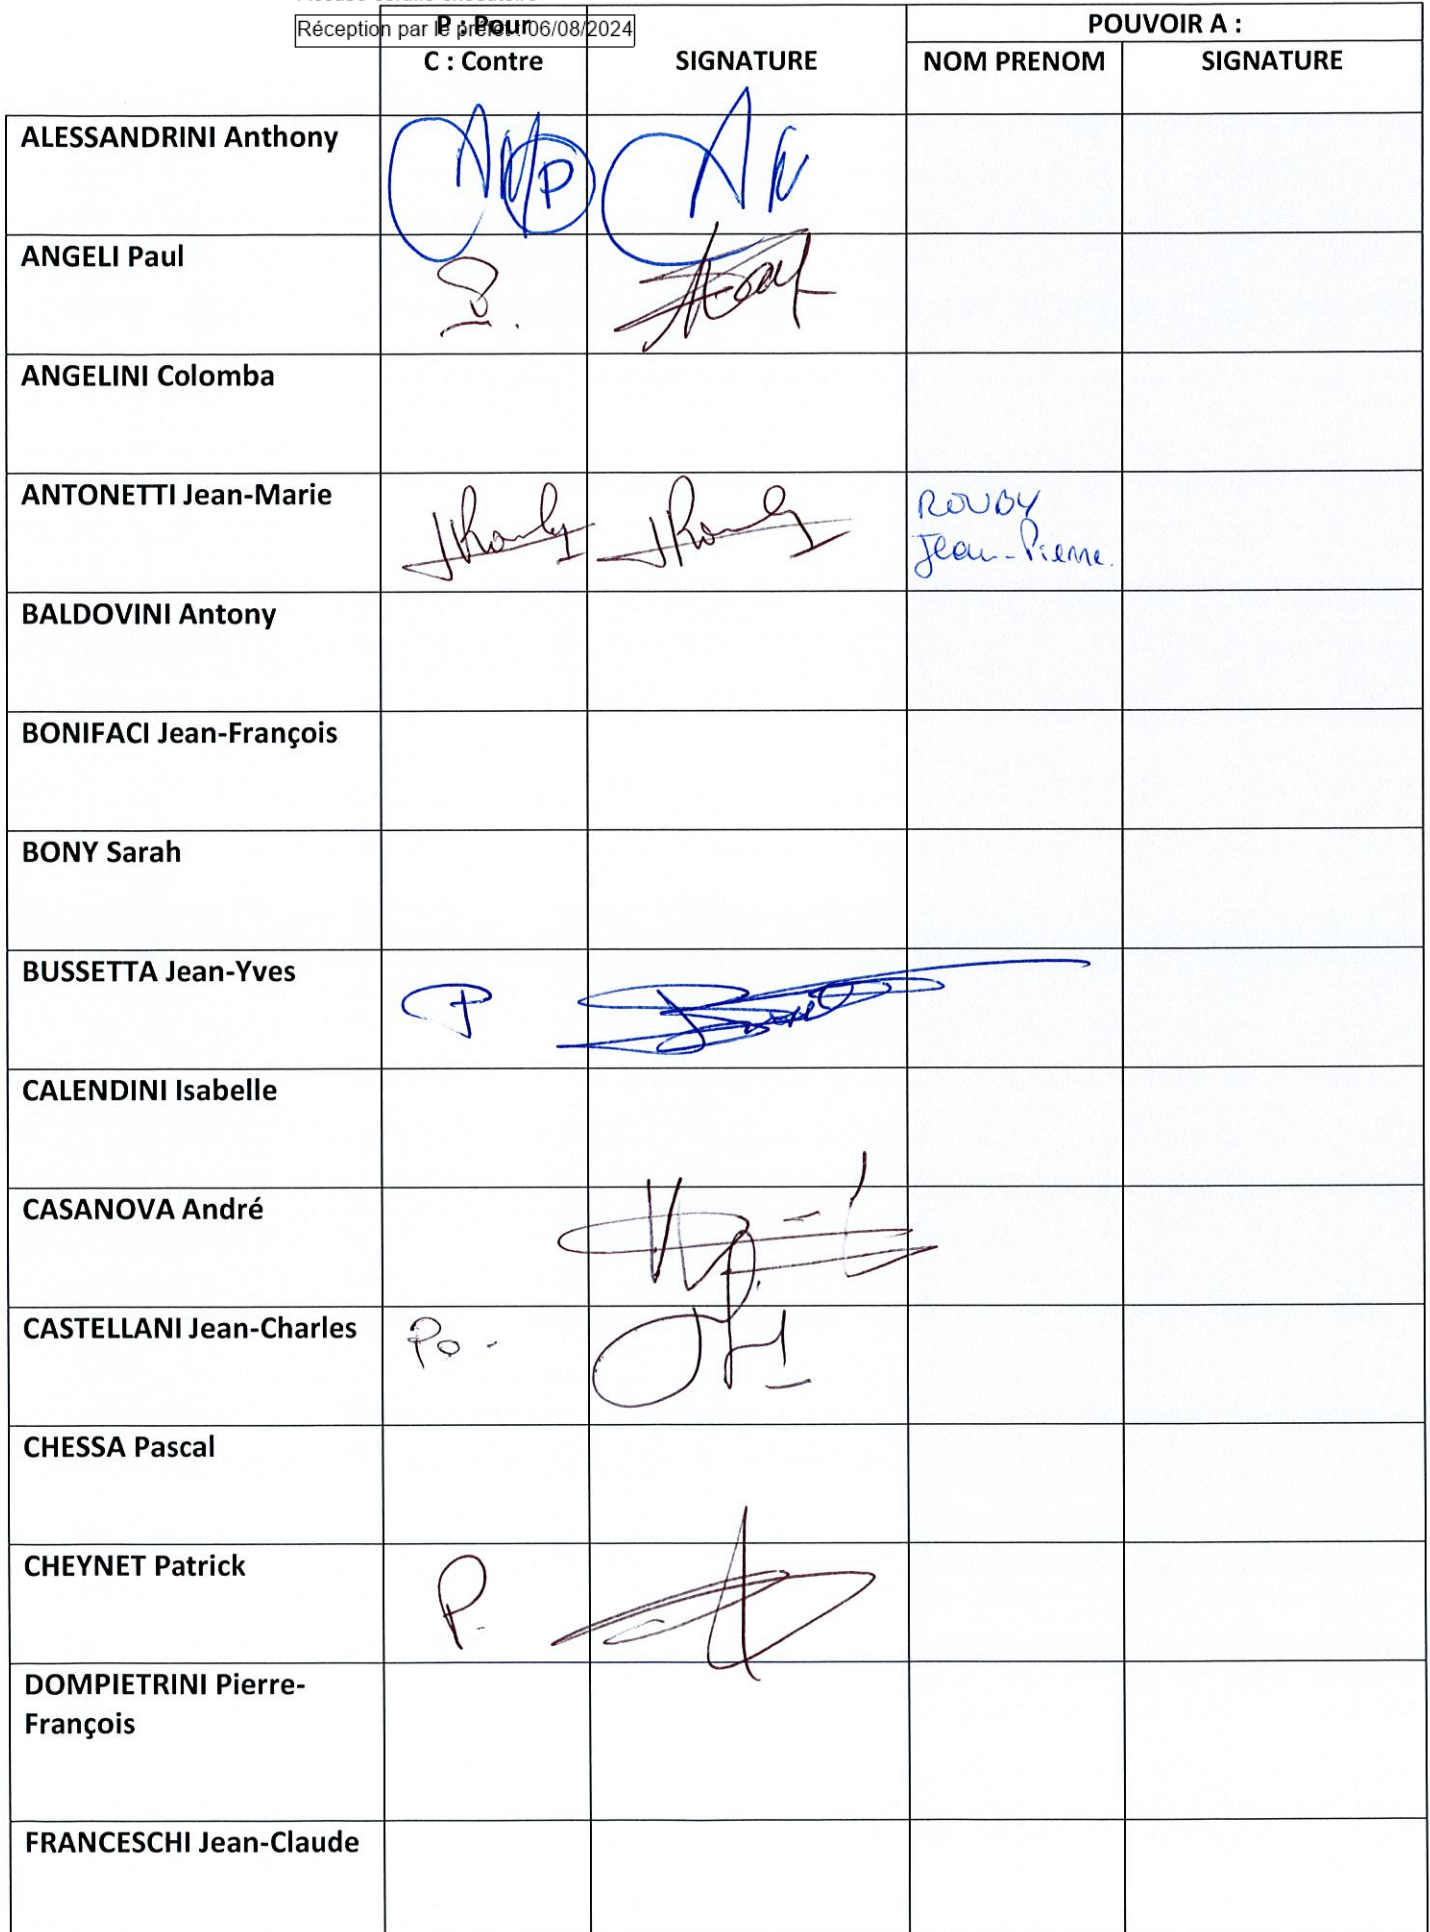 Réception par le préfet : 06/08/2024
P : Pour
C : Contre
SIGNATURE
POUVOIR A :
NOM PRENOM
SIGNATURE
ALESSANDRINI Anthony
P
ANGELI Paul
ANGELINI Colomba
ANTONETTI Jean-Marie
ROUBY
Jean-Pierre.
BALDOVINI Antony
BONIFACI Jean-François
BONY Sarah
BUSSETTA Jean-Yves
P
CALENDINI Isabelle
CASANOVA André
CASTELLANI Jean-Charles
Po -
CHESSA Pascal
CHEYNET Patrick
P.
DOMPIETRINI Pierre-
François
FRANCESCHI Jean-Claude